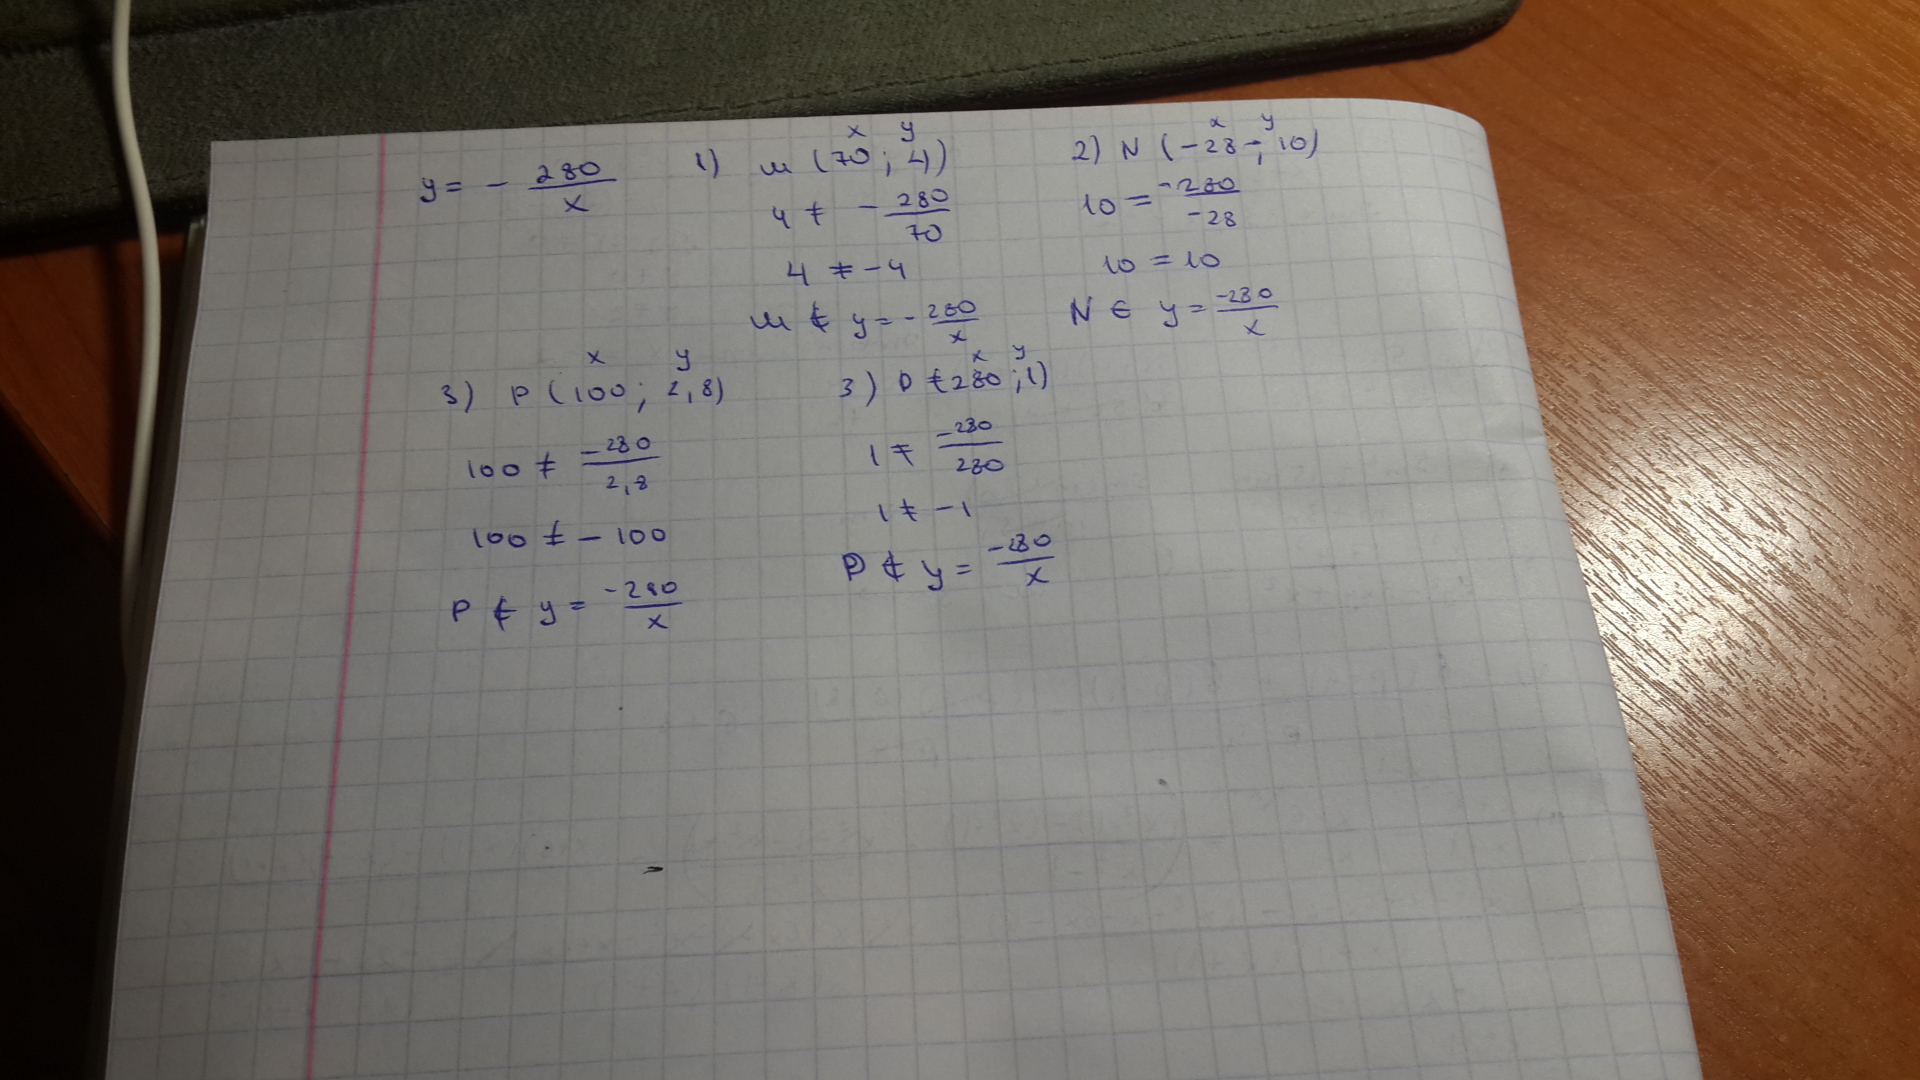 y = - 280/x
1) M (70; 4)
x y
4 ≠ - 280/70
4 ≠ -4
M ∉ y = - 280/x
2) N (-28; 10)
x y
10 = -280/-28
10 = 10
N ∈ y = -280/x
x y
3) P (100; 2,8)
100 ≠ -280/2,8
100 ≠ - 100
P ∉ y = -280/x
x y
3) P (280; 1)
1 ≠ -280/280
1 ≠ -1
P ∉ y = -280/x